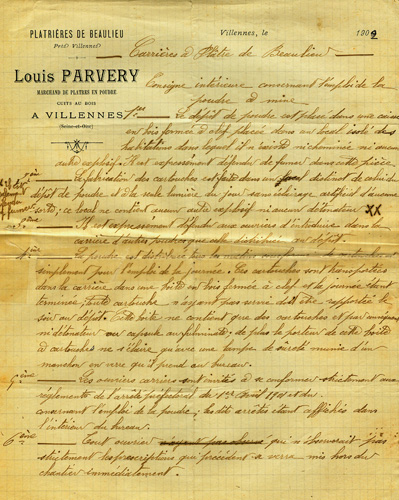 PLATRIÈRES DE BEAULIEU
Villennes, le 1909
Carrières à Plâtre de Beaulieu
Louis PARVERY
MARCHAND DE PLATRES EN POUDRE
CUITS AU BOIS
A VILLENNES
(Seine-et-Oise)
Consigne intérieure concernant l'emploi de la
poudre à mine
1er Le dépôt de poudre est placé dans une caisse
en bois fermée à clef placée dans un local isolé des
habitations dans lequel il n'existe ni cheminée ni aucun
autre explosif. Il est expressément défendu de fumer dans cette pièce
La fabrication des cartouches est faite dans un distinct de celui du
dépôt de poudre et à la seule lumière du jour sans éclairage artificiel d'aucune
sorte, ce local ne contient aucun autre explosif ni aucun détonateur XX
Il est expressément défendu aux ouvriers d'introduire dans la
carrière d'autres poudres que celle distribuée au dépôt.
4ème La poudre est distribuée tous les matins
simplement pour l'emploi de la journée. Les cartouches sont transportées
dans la carrière dans une boîte en bois fermée à clef et la journée étant
terminée, toute cartouche n'ayant pas servie doit être rapportée le
soir au dépôt. Cette boîte ne contient que des cartouches et par conséquent
ni détonateur ou capsule au fulminate; de plus le porteur de cette boîte
à cartouches ne s'éclaire qu'avec une lampe de sûreté munie d'un
manchon en verre qu'il prend au bureau.
5ème Les ouvriers carriers sont invités à se conformer strictement aux
règlements de l'arrêté préfectoral du 1er Août 19 et du
concernant l'emploi de la poudre; les dits arrêtés étant affichés dans
l'intérieur du bureau.
6ème Tout ouvrier qui n'observerait pas
strictement les prescriptions qui précèdent se verra mis hors du
chantier immédiatement.